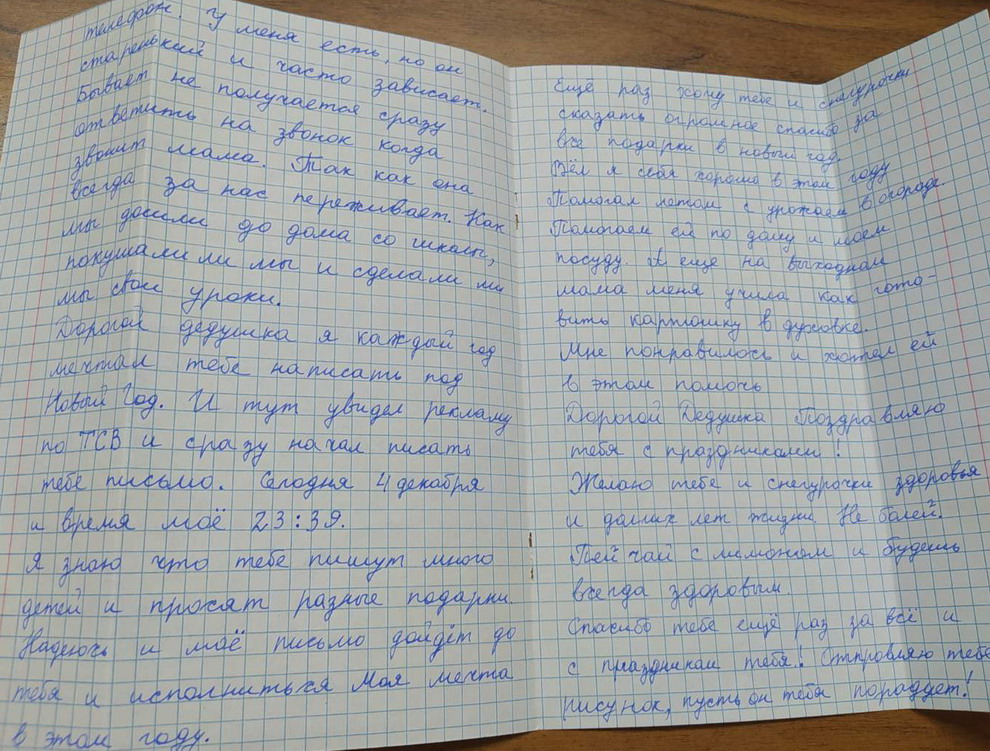 телефон. У меня есть, но он
старенький и часто зависает.
Бывает не получается сразу
ответить на звонок когда
звонит мама. Так как она
всегда за нас переживает. Как
мы дошли до дома со школы,
покушали ли мы и сделали ли
мы свои уроки.
Дорогой дедушка я каждый год
мечтал тебе написать под
Новый Год. И тут увидел рекламу
по ТСВ и сразу начал писать
тебе письмо. Сегодня 4 декабря
и время моё 23:39.
Я знаю что тебе пишут много
детей и просят разные подарки.
Надеюсь и моё письмо дойдёт до
тебя и исполниться моя мечта
в этом году.
Ещё раз хочу тебе и снегурочки
сказать огромное спасибо за
все подарки в новый год.
Вёл я себя хорошо в этом году
Помогал летом с урожаем в огороде.
Помогаем ей по дому и моем
посуду. А еще на выходном
мама меня учила как гото-
вить картошку в духовке.
Мне понравилось и хотел ей
в этом помочь
Дорогой Дедушка Поздравляю
тебя с праздниками!
Желаю тебе и снегурочки здоровья
и долгих лет жизни. Не болей.
Пей чай с лимоном и будешь
всегда здоровым.
Спасибо тебе ещё раз за всё и
с праздником тебя! Отпровляю тебе
рисунок, пусть он тебя порадует!